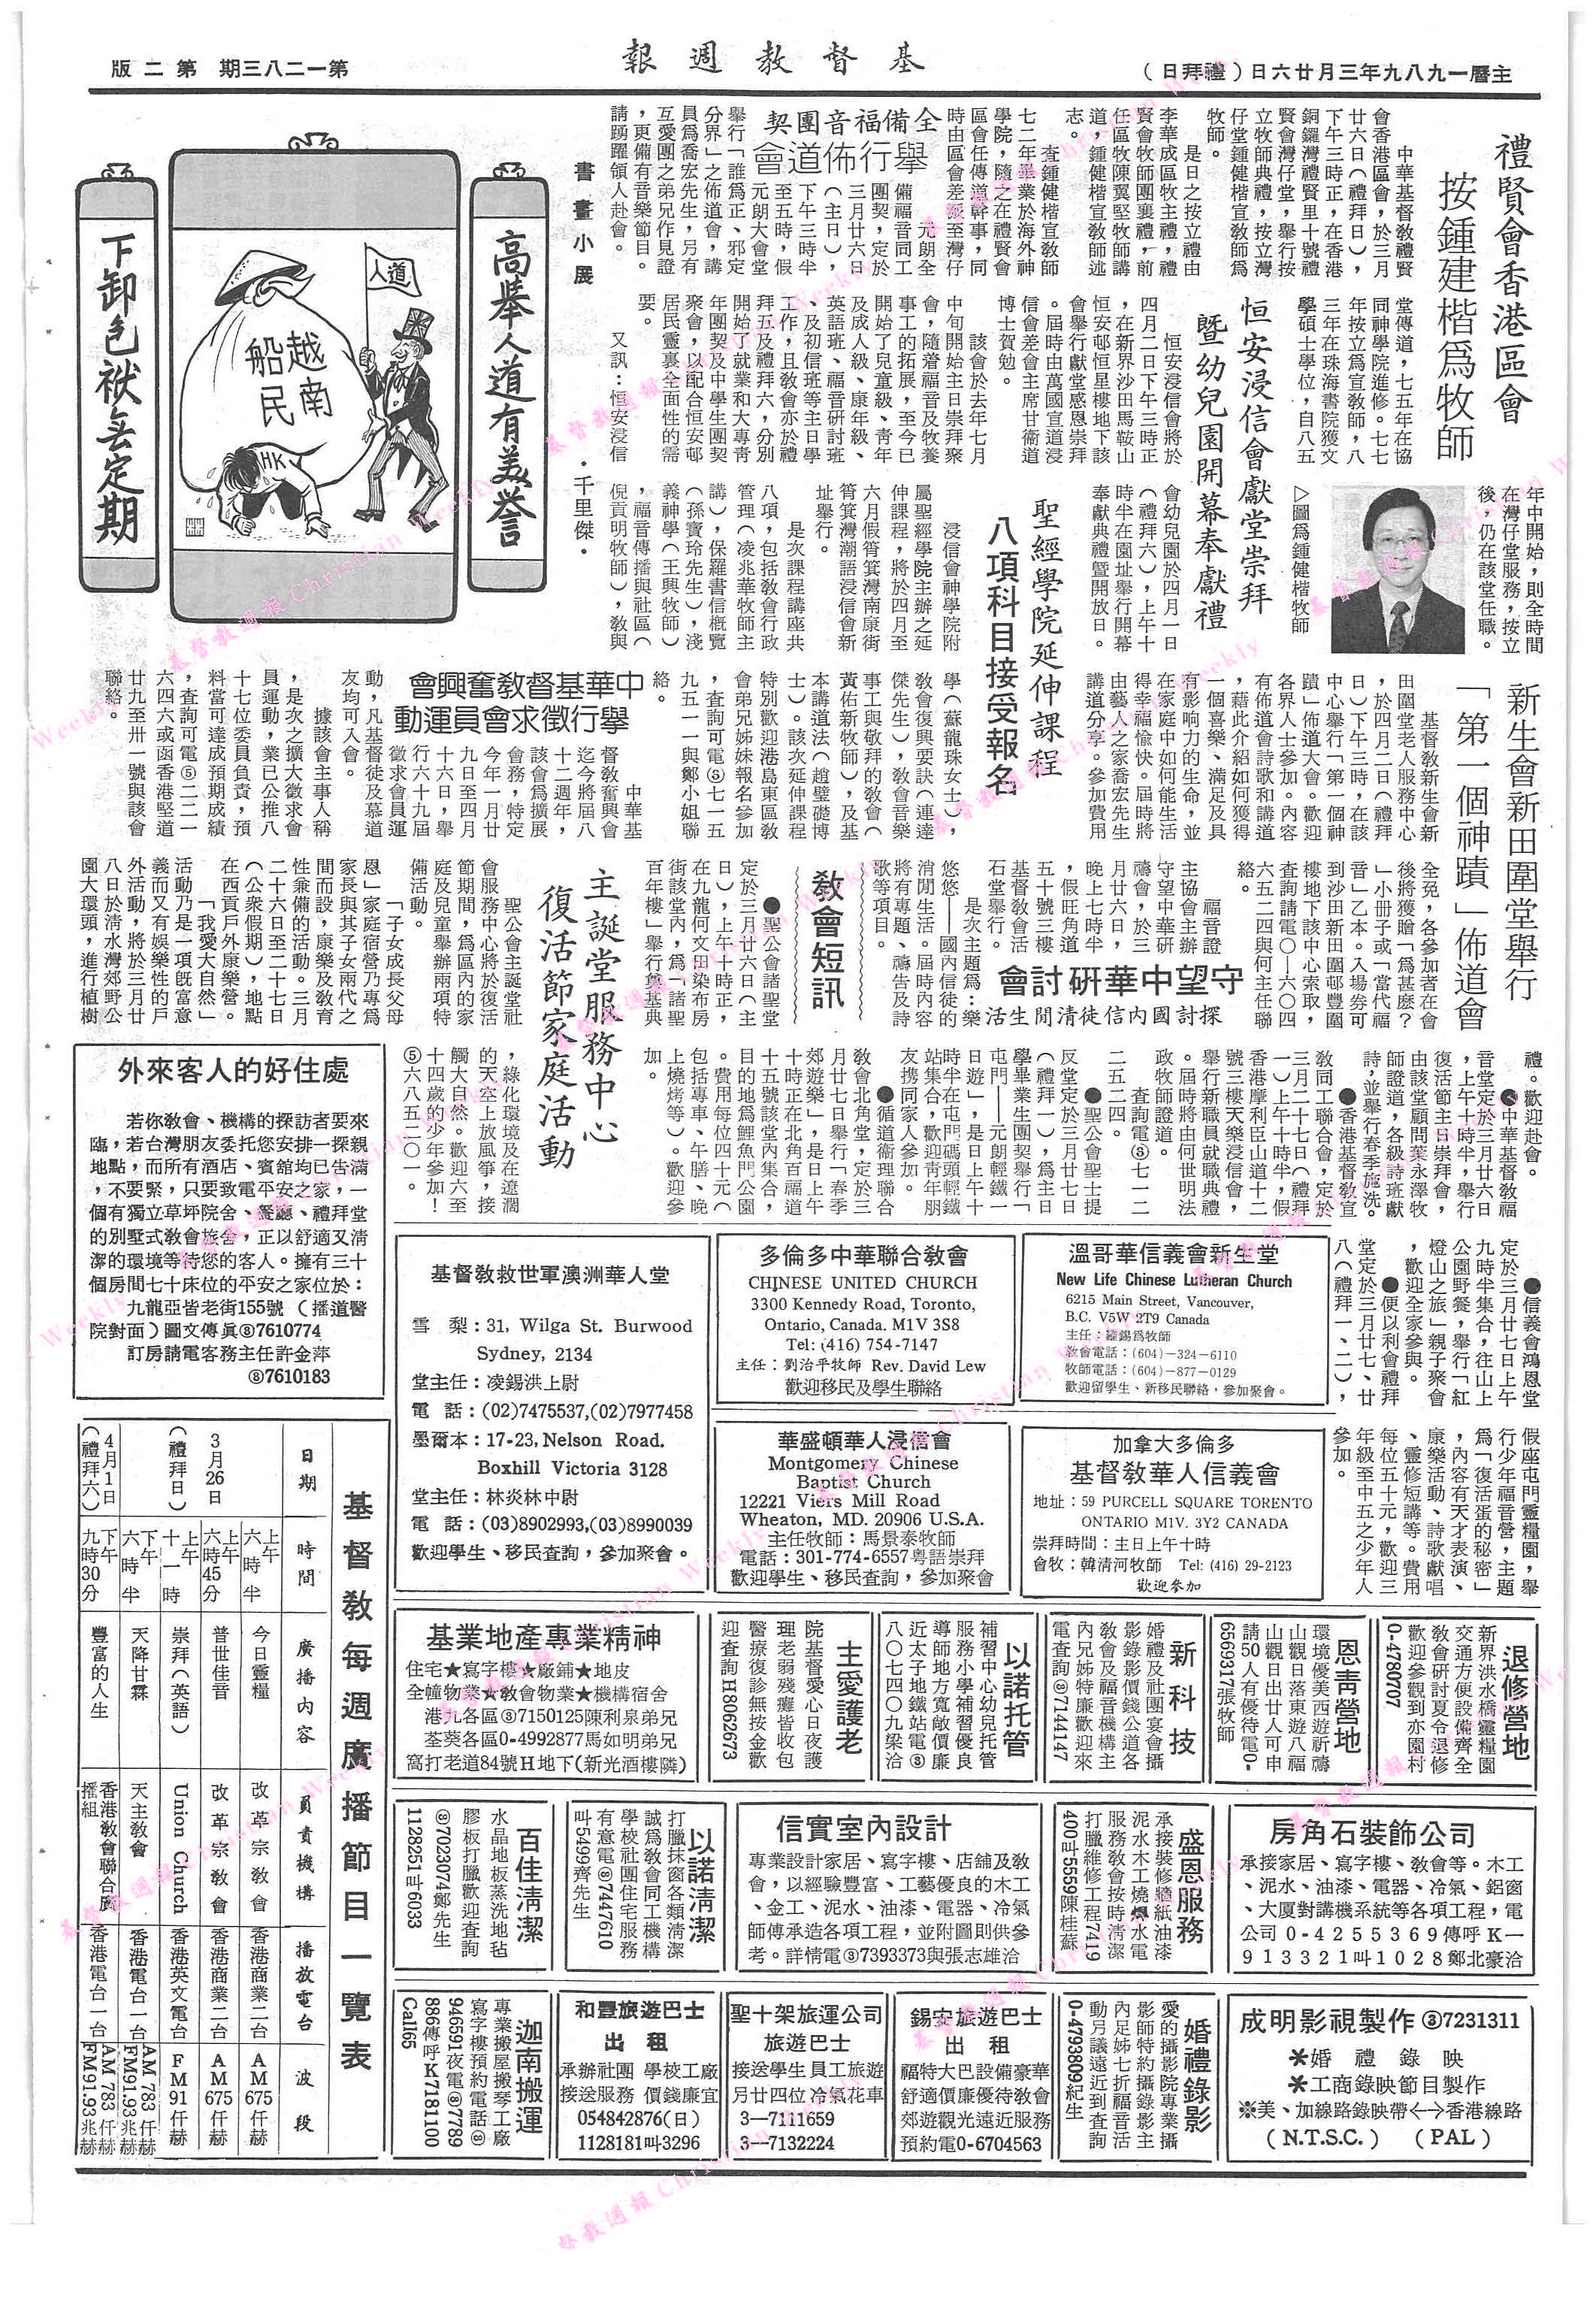 主曆一九八九年三月廿六日（禮拜日）
基督教週報
第一二八三期　第二版
禮賢會香港區會
按鍾建楷爲牧師
中華基督教禮賢
會香港區會，於三月
廿六日（禮拜日），
下午三時正，在香港
銅鑼灣禮賢里十號禮
賢會灣仔堂，舉行按
立牧師典禮，按立灣
仔堂鍾健楷宣教師爲
牧師。
是日之按立禮由
李華成區牧主禮，禮
賢會牧師團襄禮，前
任區牧陳翼堅牧師講
道，鍾健楷宣教師述
志。
查鍾健楷宣教師
七二年畢業於海外神
學院，隨之在禮賢會
區會任傳道幹事，同
時由區會差派至灣仔
堂傳道，七五年在協
同神學院進修。七七
年按立爲宣教師，八
三年在珠海書院獲文
學碩士學位，自八五
年中開始，則全時間
在灣仔堂服務，按立
後，仍在該堂任職。
▷圖爲鍾健楷牧師
全備福音團契
舉行佈道會
元朗全
備福音同工
團契，定於
三月廿六日
（主日），
下午三時半
至五時，假
元朗大會堂
舉行「誰爲正、邪定
分界」之佈道會，講
員爲喬宏先生，另有
互愛團之弟兄作見證
，更備有音樂節目。
請踴躍領人赴會。
恒安浸信會獻堂崇拜
暨幼兒園開幕奉獻禮
恒安浸信會將於
四月二日下午三時正
，在新界沙田馬鞍山
恒安邨恒星樓地下該
會舉行獻堂感恩崇拜
。屆時由萬國宣道浸
信會差會主席甘衞道
博士賀勉。
該會於去年七月
中旬開始主日崇拜聚
會，隨着福音及牧養
事工的拓展，至今已
開始了兒童級、青年
及成人級、康年級、
英語班、福音研討班
、及初信班等主日學
工作，且教會亦於禮
拜五及禮拜六，分別
開始了就業和大專青
年團契及中學生團契
聚會，以配合恒安邨
居民靈裏全面性的需
要。
又訊：恒安浸信
會幼兒園於四月一日
（禮拜六），上午十
時半在園址舉行開幕
奉獻典禮暨開放日。
書畫小展
．千里傑．
高舉人道有美譽
人道
越南船民
HK
下卸包袱無定期
聖經學院延伸課程
八項科目接受報名
浸信會神學院附
屬聖經學院主辦之延
伸課程，將於四月至
六月假筲箕灣南康街
筲箕灣潮語浸信會新
址舉行。
是次課程講座共
八項，包括教會行政
管理（凌兆華牧師主
講），保羅書信概覽
（孫寶玲先生），淺
義神學（王興牧師）
，福音傳播與社區（
倪貢明牧師），教與
學（蘇龍珠女士），
教會復興要訣（連達
傑先生），教會音樂
事工與敬拜的教會（
黃佑新牧師），及基
本講道法（趙璧礎博
士）。該次延伸課程
特別歡迎港島東區教
會弟兄姊妹報名參加
，查詢可電⑤七一五
九五一一與鄭小姐聯
絡。
中華基督教奮興會
舉行徵求會員運動
中華基
督教奮興會
迄今將屆八
十二週年，
該會爲擴展
會務，特定
今年一月廿
九日至四月
十六日，舉
行六十九屆
徵求會員運
動，凡基督徒及慕道
友均可入會。
據該會主事人稱
，是次之擴大徵求會
員運動，業已公推八
十七位委員負責，預
料當可達成預期成績
，查詢可電⑤二二一
六四六或函香港堅道
廿九至卅一號與該會
聯絡。
新生會新田圍堂舉行
「第一個神蹟」佈道會
基督教新生會新
田圍堂老人服務中心
，於四月二日（禮拜
日）下午三時，在該
中心舉行「第一個神
蹟」佈道大會。歡迎
各界人士參加。內容
有佈道會詩歌和講道
，藉此介紹如何獲得
一個喜樂、滿足及具
有影响力的生命，並
在家庭中如何能生活
得幸福愉快。屆時將
由藝人之家喬宏先生
講道分享。參加費用
全免，各參加者在會
後將獲贈「爲甚麽?
」小册子或「當代福
音」乙本。入場券可
到沙田新田圍邨豐圍
樓地下該中心索取，
查詢請電〇—六〇四
六五二四與何主任聯
絡。
守望中華硏討會
探討國內信徒清閒生活
福音證
主協會主辦
守望中華硏
禱會，於三
月廿六日，
晚上七時半
，假旺角道
五十號三樓
基督教會活
石堂舉行。
是次主題爲：樂
悠悠——國內信徒的
消閒生活。屆時內容
將有專題、禱告及詩
歌等項目。
教會短訊
●聖公會諸聖堂
定於三月廿六日（主
日），上午十時正，
在九龍何文田染布房
街該堂內，爲「諸聖
百年樓」舉行奠基典
禮。歡迎赴會。
●中華基督教福
音堂定於三月廿六日
，上午十時半，舉行
復活節主日崇拜會，
由該堂顧問葉永澤牧
師證道，各級詩班獻
詩，並舉行春季施洗。
●香港基督教宣
教同工聯合會，定於
三月二十七日（禮拜
一）上午十時半，假
香港摩利臣山道十二
號三樓天樂浸信會，
舉行新職員就職典禮
。屆時將由何世明法
政牧師證道。
查詢電⑧七一二
二五二四。
●聖公會聖士提
反堂定於三月廿七日
（禮拜一），爲主日
學畢業生團契舉行「
屯門——元朗輕鐵一
日遊」，是日上午十
時半在屯門碼頭輕鐵
站集合，歡迎青年朋
友携同家人參加。
●循道衞理聯合
教會北角堂，定於三
月廿七日舉行「春季
郊遊樂」，是日上午
十時正在北角百福道
十五號該堂內集合，
目的地爲鯉魚門公園
。費用每位四十元（
包括專車、午膳、晚
上燒烤等）。歡迎參
加。
●信義會鴻恩堂
定於三月廿七日上午
九時半集合，往山上
公園野餐，舉行「紅
燈山之旅」親子聚會
，歡迎全家參與。
●便以利會禮拜
堂定於三月廿七、廿
八（禮拜一、二），
假座屯門靈糧園，舉
行少年福音營，主題
爲「復活蛋的秘密」
，內容有天才表演、
康樂活動、詩歌獻唱
、靈修短講等。費用
每位五十元，歡迎三
年級至中五之少年人
參加。
主誕堂服務中心
復活節家庭活動
聖公會主誕堂社
會服務中心將於復活
節期間，爲區內的家
庭及兒童舉辦兩項特
備活動。
「子女成長父母
恩」家庭宿營乃專爲
家長與其子女兩代之
間而設，康樂及教育
性兼備的活動。三月
二十六日至二十七日
（公衆假期），地點
在西貢戶外康樂營。
「我愛大自然」
活動乃是一項旣富意
義而又有娛樂性的戶
外活動，將於三月廿
八日於清水灣郊野公
園大環頭，進行植樹
，綠化環境及在遼濶
的天空上放風箏，接
觸大自然。歡迎六至
十四歲的少年參加！
⑤六八五二〇一。
外來客人的好住處
若你教會、機構的探訪者要來
臨，若台灣朋友委托您安排一探親
地點，而所有酒店、賓館均已告滿
，不要緊，只要致電平安之家，一
個有獨立草坪院舍、餐廳、禮拜堂
的別墅式教會旅舍，正以舒適又清
潔的環境等待您的客人。擁有三十
個房間七十床位的平安之家位於：
九龍亞皆老街155號（播道醫
院對面）圖文傳眞⑧7610774
訂房請電客務主任許金萍
⑧7610183
基督教救世軍澳洲華人堂
雪　梨：31, Wilga St. Burwood
Sydney, 2134
堂主任：凌錫洪上尉
電　話：(02)7475537,(02)7977458
墨爾本：17-23, Nelson Road.
Boxhill Victoria 3128
堂主任：林炎林中尉
電　話：(03)8902993,(03)8990039
歡迎學生、移民查詢，參加聚會。
多倫多中華聯合教會
CHINESE UNITED CHURCH
3300 Kennedy Road, Toronto,
Ontario, Canada. M1V 3S8
Tel: (416) 754-7147
主任：劉治平牧師 Rev. David Lew
歡迎移民及學生聯絡
溫哥華信義會新生堂
New Life Chinese Lutheran Church
6215 Main Street, Vancouver,
B.C. V5W 2T9 Canada
主任：羅錫爲牧師
教會電話：(604)－324－6110
牧師電話：(604)－877－0129
歡迎留學生、新移民聯絡，參加聚會。
華盛頓華人浸信會
Montgomery Chinese
Baptist Church
12221 Viers Mill Road
Wheaton, MD. 20906 U.S.A.
主任牧師：馬景泰牧師
電話：301-774-6557粵語崇拜
歡迎學生、移民查詢，參加聚會
加拿大多倫多
基督教華人信義會
地址：59 PURCELL SQUARE TORENTO
ONTARIO M1V. 3Y2 CANADA
崇拜時間：主日上午十時
會牧：韓清河牧師　Tel: (416) 29-2123
歡迎參加
基督教每週廣播節目一覽表
日期　時間　廣播內容　負責機構　播放電台　波段
3月26日（禮拜日）
上午六時半　今日靈糧　改革宗教會　香港商業二台　AM 675 仟赫
上午六時45分　普世佳音　改革宗教會　香港商業二台　AM 675 仟赫
上午十一時　崇拜（英語）　Union Church　香港英文電台　FM 91 仟赫
下午六時半　天降甘霖　天主教會　香港電台一台　AM 783 仟赫 FM91.93 兆赫
4月1日（禮拜六）
下午九時30分　豐富的人生　香港教會聯合廣播組　香港電台一台　AM 783 仟赫 FM91.93 兆赫
基業地產專業精神
住宅★寫字樓★廠舖★地皮
全幢物業★教會物業★機構宿舍
港九各區⑧7150125陳利泉弟兄
荃葵各區0-4992877馬如明弟兄
窩打老道84號H地下(新光酒樓隣)
主愛護老
院基督愛心日夜護
理老弱殘癱皆收包
醫療復診無按金歡
迎查詢H8062673
以諾托管
補習中心幼兒托管
服務小學補習優良
導師地方寬敞價廉
近太子地鐵站電⑧
八〇七四〇九梁洽
新科技
婚禮及社團宴會攝
影錄影價錢公道各
教會及福音機構主
內兄姊特廉歡迎來
電查詢⑧7144147
恩青營地
環境優美西遊祈禱
山觀日落東遊八福
山觀日出廿人可申
請50人有優待電0-
6569317張牧師
退修營地
新界洪水橋靈糧園
交通方便設備齊全
教會研討夏令退修
歡迎參觀到亦園村
0-4780707
百佳淸潔
水晶地板蒸洗地毡
膠板打臘歡迎查詢
⑧7023074鄭先生
1128251叫6033
以諾淸潔
打臘抹窗各類淸潔
誠爲教會同工機構
學校社團住宅服務
有意電⑧7447610
叫5499齊先生
信實室內設計
專業設計家居、寫字樓、店舖及教
會，以經驗豐富、工藝優良的木工
、金工、泥水、油漆、電器、冷氣
師傅承造各項工程，並附圖則供參
考。詳情電⑧7393373與張志雄洽
盛恩服務
承接裝修牆紙油漆
泥水木工燒焊水電
服務教會按時清潔
打臘維修工程7749
400叫5559陳桂蘇
房角石裝飾公司
承接家居、寫字樓、教會等。木工
、泥水、油漆、電器、冷氣、鋁窗
、大厦對講機系統等各項工程，電
公司0-4255369傳呼K一
913321叫1028鄭北豪洽
迦南搬運
專業搬屋搬琴工廠
寫字樓預約電話⑧
946691夜電⑧7789
886傳呼K7181100
Call65
和豐旅遊巴士
出　租
承辦社團　學校工廠
接送服務　價錢廉宜
054842876(日)
1128181叫3296
聖十架旅運公司
旅遊巴士
接送學生員工旅遊
另廿四位冷氣花車
3—7111659
3—7132224
錫安旅遊巴士
出　租
福特大巴設備豪華
舒適價廉優待教會
郊遊觀光遠近服務
預約電0-6704563
婚禮錄影
愛的攝影院專業攝
影師特約攝錄影主
內足姊七折福音活
動另議遠近到查詢
0-4793809紀生
成明影視製作 ③7231311
＊婚禮錄映
＊工商錄映節目製作
※美、加線路錄映帶<-->香港線路
( N.T.S.C. )　( PAL )
基督教週報 Christian Weekly